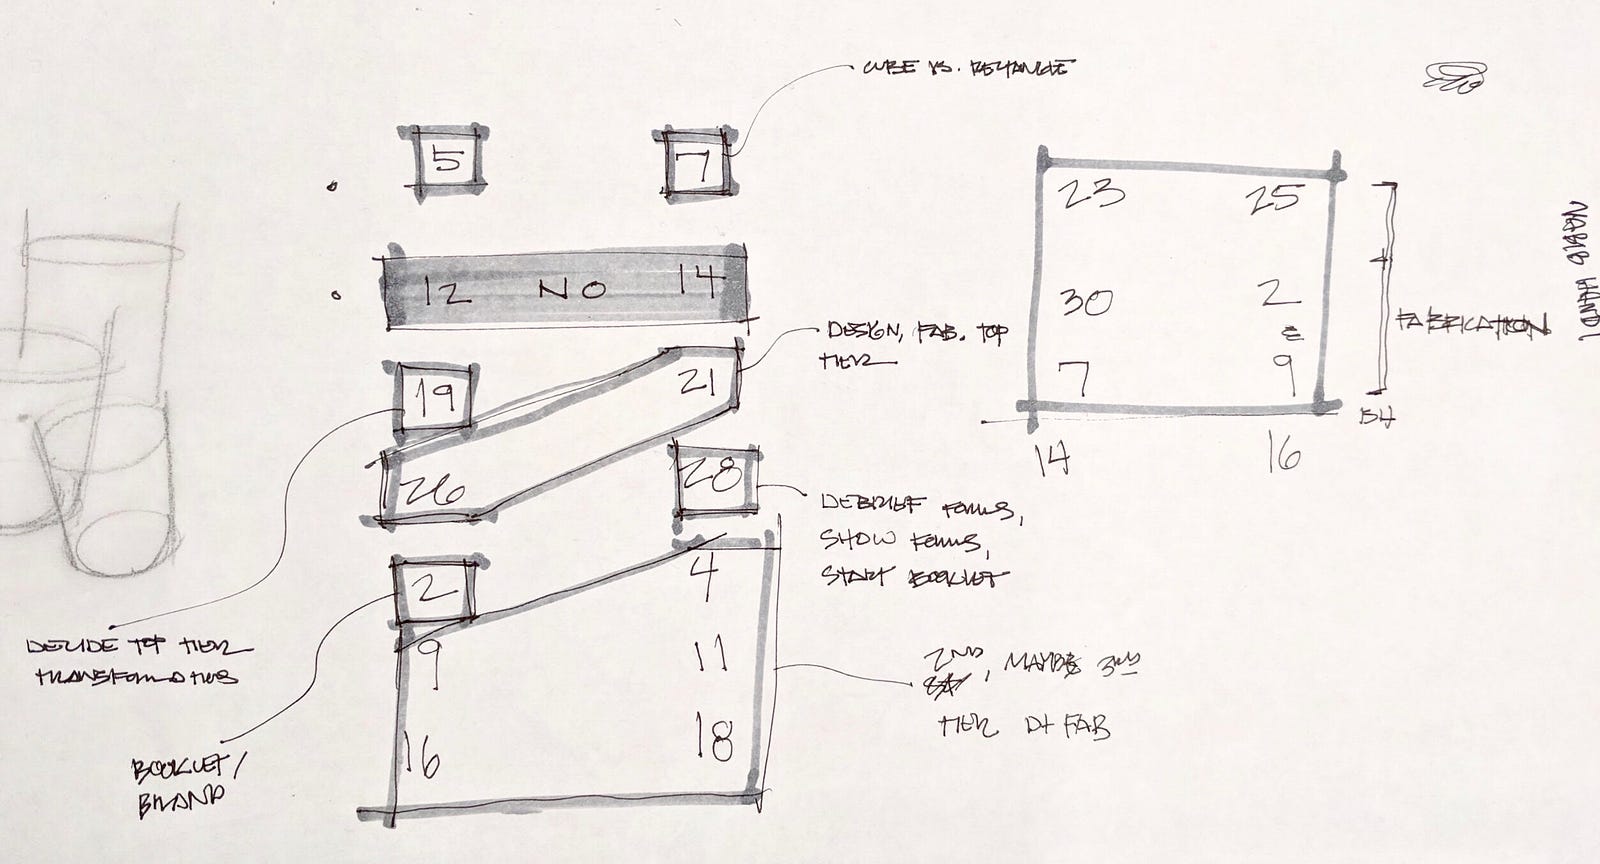 CUBE VS. RECTANGLE
5 7
12 NO 14
19 21
DESIGN, FAB. TOP
TIER
26 28
DEBRIEF FORMS,
SHOW FORMS,
START BOOKLET
2 4
9 11
16 18
DECIDE TOP TIER
TRANSFORMATIONS
BOOKLET/
BRAND
2ND, MAYBE 3RD
TIER D+FAB
23 25
30 2
&
7 9
14 16
FABRICATION
BH